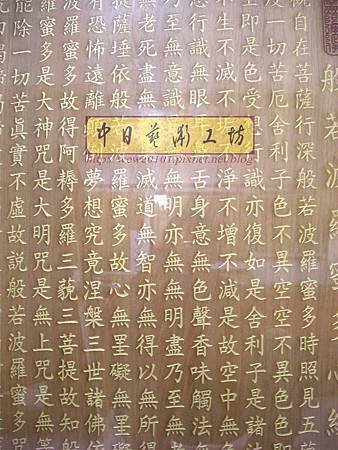 般若波羅蜜多心
自在菩薩行深般若波羅蜜多時照見五
一切苦厄舍利子色不異空空不異色
即是色受想識亦復如是舍利子是諸法
不生不滅不淨不增不減是故空中無
行識無眼舌身意無色聲香味觸法
無意識無明亦無無明盡乃至無
無老死盡無滅道無智亦無得以無所
提薩埵依般羅蜜多故心無罣礙無罣
有恐怖遠離夢想究竟涅槃三世諸佛依
波羅蜜多故得阿耨多羅三藐三菩提故知
羅蜜多是大神咒是大明咒是無上咒是無等
能除一切苦真實不虛故說般若波羅蜜多咒
中日藝術工坊
https://view20101.pixnet.net/blog